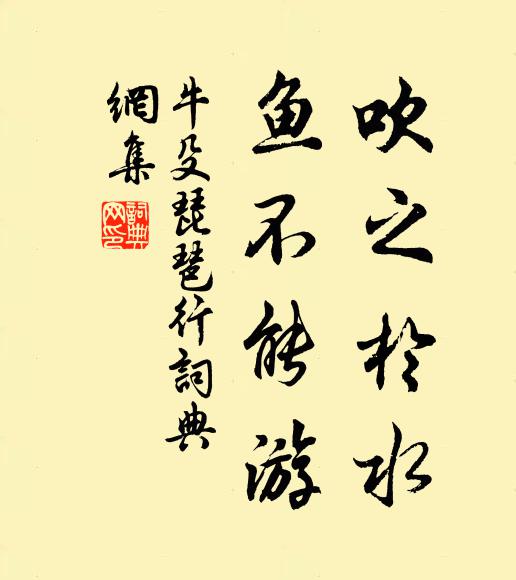 吹之於水
魚不能游
牛殳琵琶行詞典
網集
詞典
网印